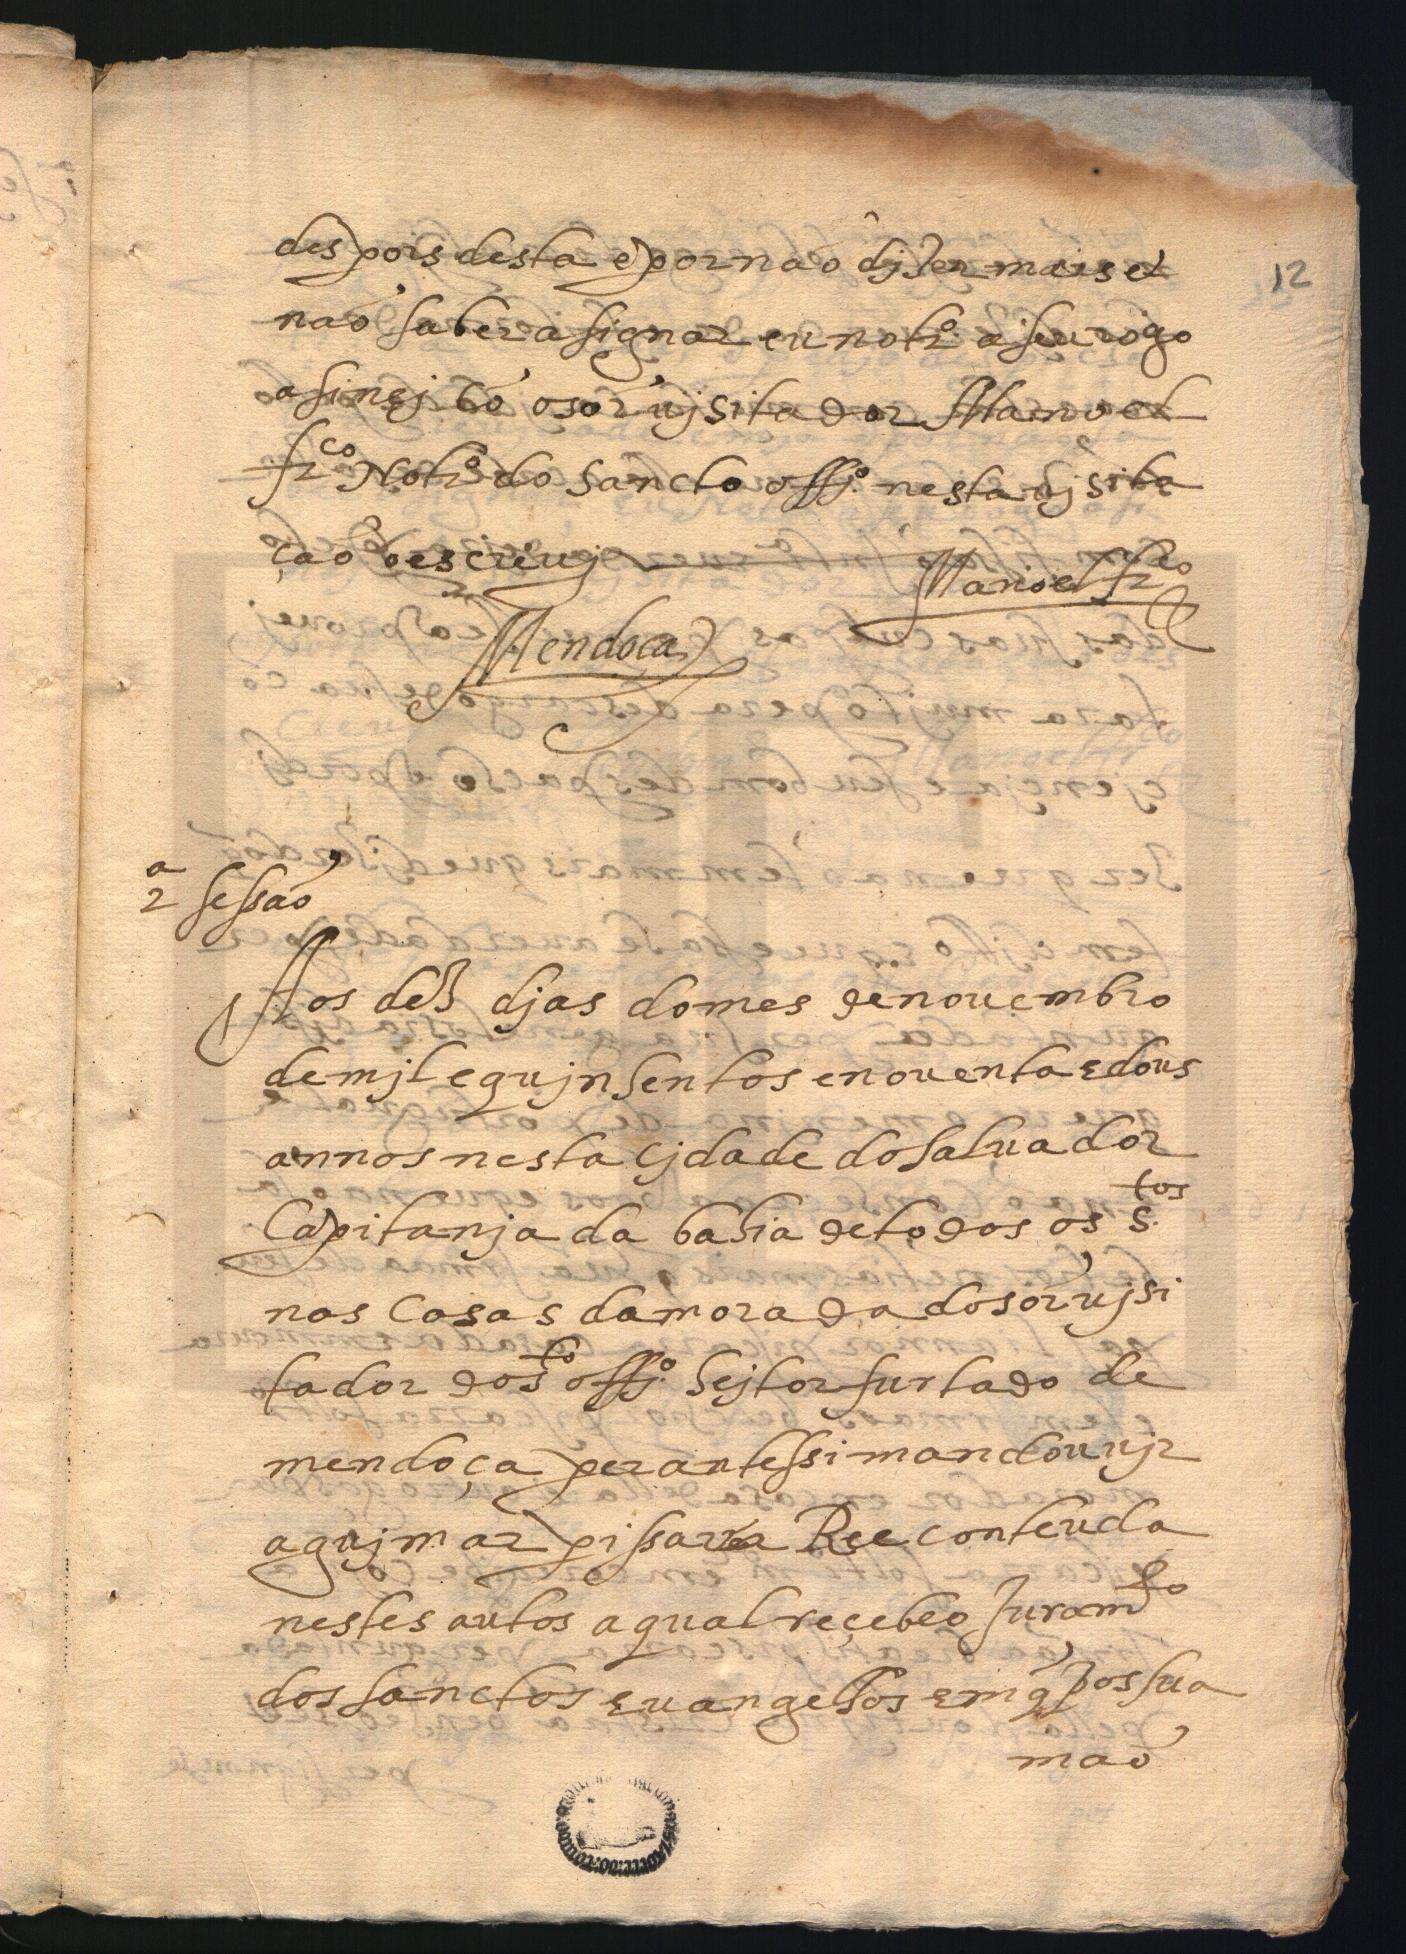 12
despois desta e por não djzer mais e
não saber asignar eu notro. a seu rogo
asinej cõ o sõr ujsitador Manoel
frco. Notro. do sancto offjo. nesta ujsita
ção o escreuj Manoel frco
Mendoça
2a sessão
Aos dez djas do mes de nouembro
de mjl e qujnsentos e nouenta e dous
annos nesta Cjdade do saluador
Capitanja da bahia de todos os s.tos
nas Casas da morada do sõr ujsi
tador do sto offjo. hejtor furtado de
mendoça perante ssi mandou ujr
a gujmar pissarra Ree contenda
nestes autos a qual reçebeo Juramto
dos sanctos euangelhos em q̃ pos sua
mão